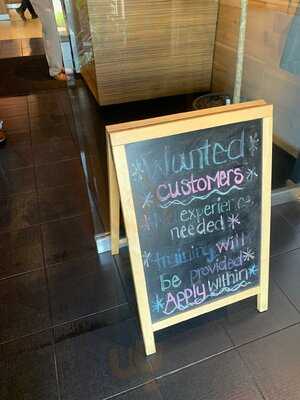 Wanted
customers
No experience
needed
training will
be provided
Apply within